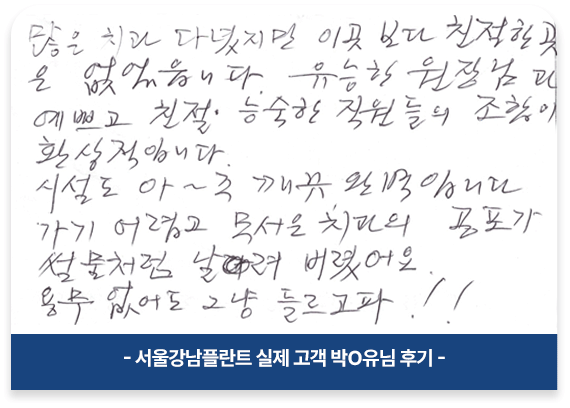 많은 치과 다녔지만 이곳 보다 친절한곳
은 없었읍니다. 유능한 원장님과
예쁘고 친절·능숙한 직원들의 조합이
환상적입니다.
시설도 아~주 깨끗 완벽입니다
가기 어렵고 무서운 치과의 공포가
썰물처럼 날려 버렸어요.
용무 없어도 그냥 들르고파!!
- 서울강남플란트 실제 고객 박O유님 후기 -